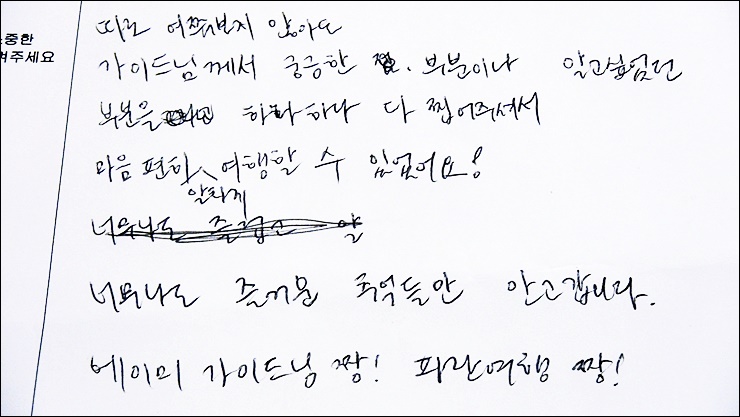 중한
주세요
따로 여쭤보지 않아도
가이드님께서 궁금한 부분이나 알고싶었던
부분을 하나하나 다 찝어주셔서
마음 편히 여행할 수 있었어요!
알차게
너무나도 즐겁고 알
너무나도 즐거운 추억들만 안고갑니다.
베이미 가이드님 짱! 파란여행 짱!